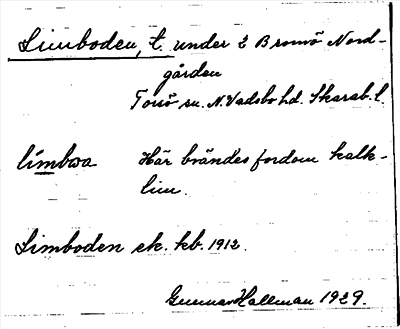 Limboden, t. under 2 Bromö Nord-
gården
Torsö sn. N. Vadsbo hd. Skarab. l.
limbωa Här brändes fordom kalk-
lim.
Limboden ek. kb. 1912.
Gunnar Hallman 1929.